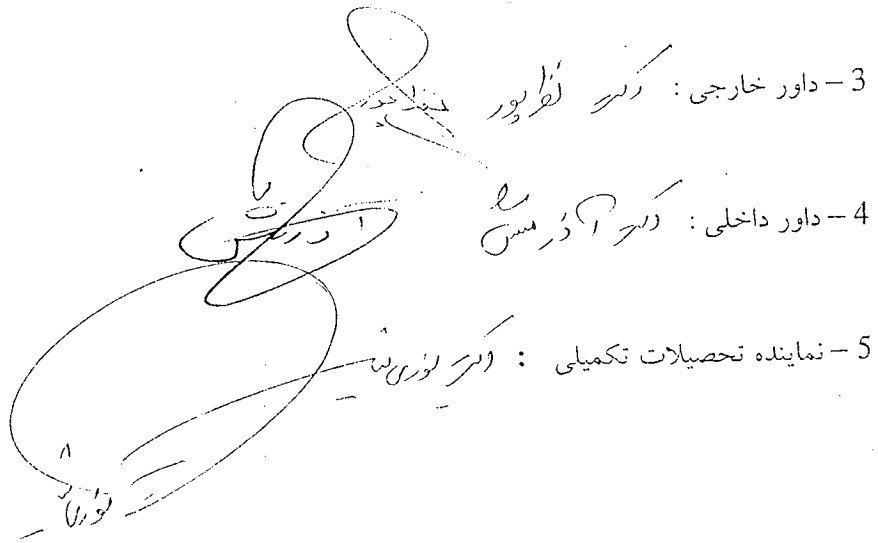 3 – داور خارجی : دکتر نظرپور
4 – داور داخلی : دکتر آذرمنش
5 – نماینده تحصیلات تکمیلی : دکتر نوری نیا